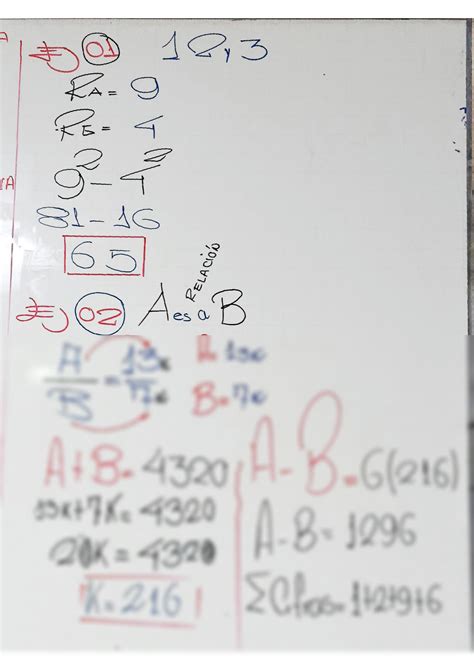 Ej 01 12 y 3
RA = 9
RB = 4
9² - 4²
81 - 16
65
Ej 02 A es a B
RELACIÓN
A/B = 13K/7K A = 13K
B = 7K
A + B = 4320
13K + 7K = 4320
20K = 4320
K = 216
A - B = 6(216)
A - B = 1296
ΣCifras = 1+2+9+6